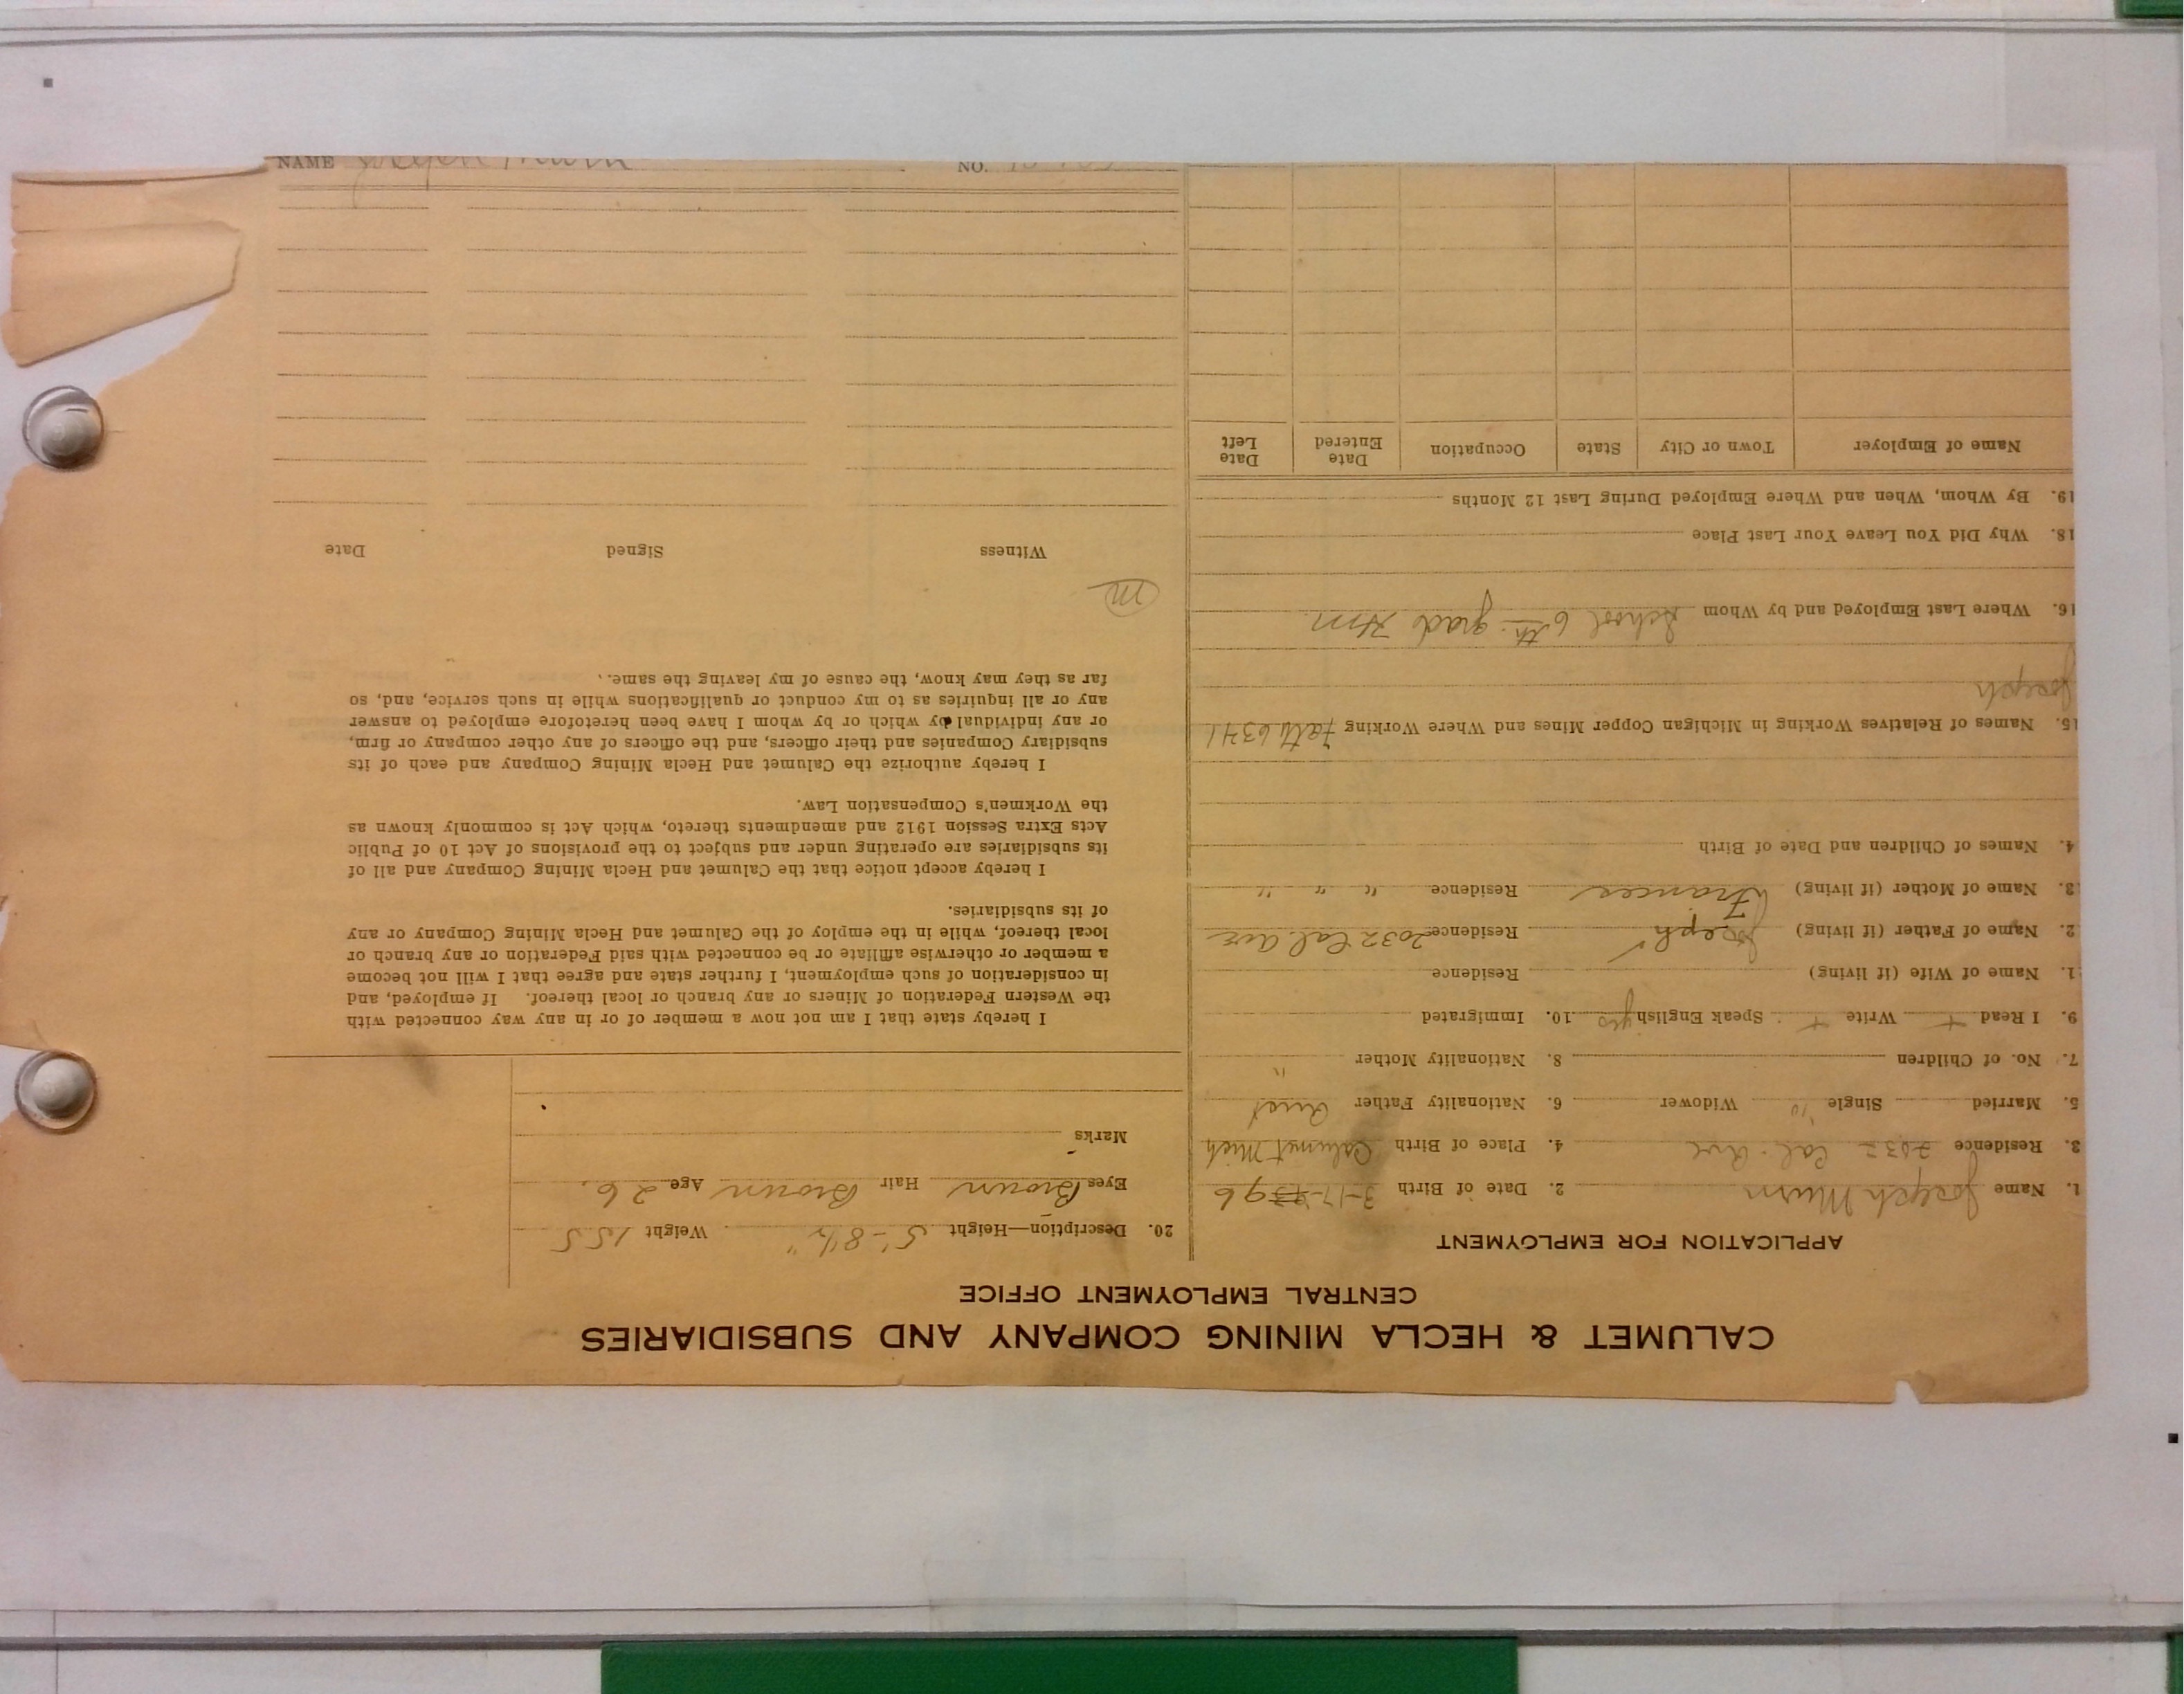 CALUMET & HECLA MINING COMPANY AND SUBSIDIARIES
CENTRAL EMPLOYMENT OFFICE
APPLICATION FOR EMPLOYMENT
1. Name Joseph Murn 2. Date of Birth 3-17- 96
3. Residence 2032 Cal. Ave 4. Place of Birth Calumet Mich
5. Married Single Widower 6. Nationality Father Aust
7. No. of Children 8. Nationality Mother "
9. I Read + Write + Speak English yes 10. Immigrated
1. Name of Wife (if living) Residence
2. Name of Father (if living) Joseph Residence 2032 Cal. Ave
3. Name of Mother (if living) Frances Residence " " "
4. Names of Children and Date of Birth
15. Names of Relatives Working in Michigan Copper Mines and Where Working Fath 6341
Joseph
16. Where Last Employed and by Whom School 6th grad
18. Why Did You Leave Your Last Place
19. By Whom, When and Where Employed During Last 12 Months
Name of Employer Town or City State Occupation Date Entered Date Left
20. Description—Height 5'-8½" Weight 155
Eyes Brown Hair Brown Age 26
Marks
I hereby state that I am not now a member of or in any way connected with
the Western Federation of Miners or any branch or local thereof. If employed, and
in consideration of such employment, I further state and agree that I will not become
a member or otherwise affiliate or be connected with said Federation or any branch or
local thereof, while in the employ of the Calumet and Hecla Mining Company or any
of its subsidiaries.
I hereby accept notice that the Calumet and Hecla Mining Company and all of
its subsidiaries are operating under and subject to the provisions of Act 10 of Public
Acts Extra Session 1912 and amendments thereto, which Act is commonly known as
the Workmen's Compensation Law.
I hereby authorize the Calumet and Hecla Mining Company and each of its
subsidiary Companies and their officers, and the officers of any other company or firm,
or any individual by which or by whom I have been heretofore employed to answer
any or all inquiries as to my conduct or qualifications while in such service, and, so
far as they may know, the cause of my leaving the same.
m
Witness Signed Date
NAME Joseph Murn NO.